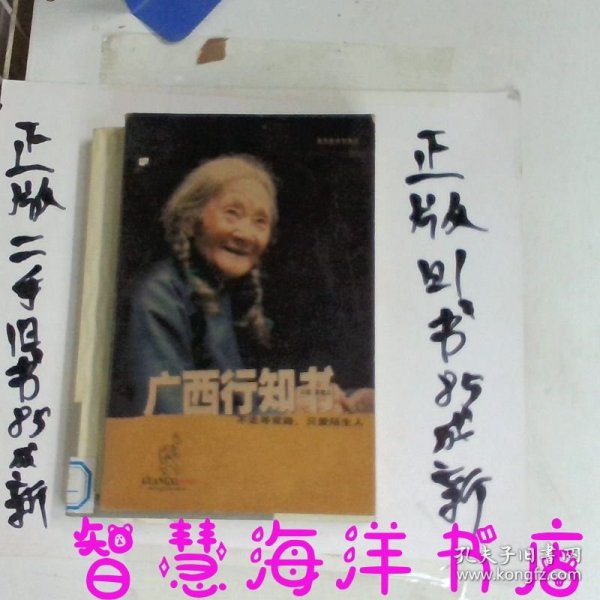 正版二手旧书85成新
正版旧书85成新
广西行知书
不走寻常路，只爱陌生人
GUANGXI
智慧海洋书店
孔夫子旧书网
www.kongfz.com